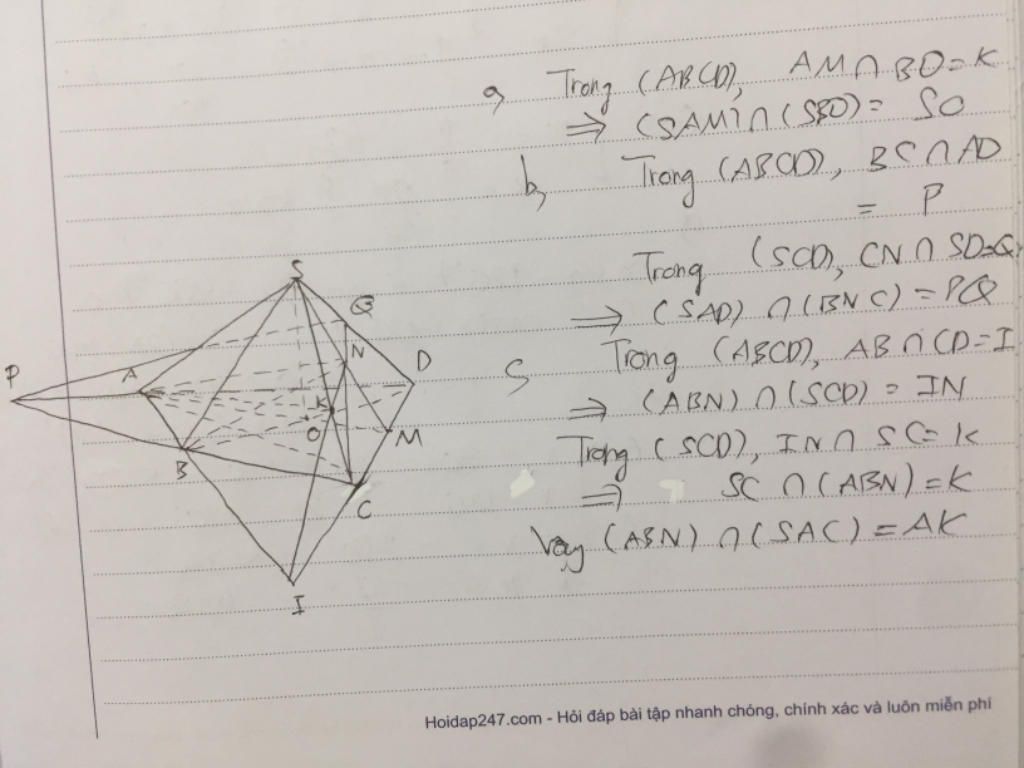 a, Trong (ABCD), AM ∩ BD = K
⇒ (SAM) ∩ (SBD) = SO
b, Trong (ABCD), BC ∩ AD
= P
Trong (SCD), CN ∩ SD = Q
⇒ (SAD) ∩ (BNC) = PQ
c, Trong (ABCD), AB ∩ CD = I
⇒ (ABN) ∩ (SCD) = IN
Trong (SCD), IN ∩ SC = K
⇒ SC ∩ (ABN) = K
Vậy (ABN) ∩ (SAC) = AK
S
Q
N
D
P
A
K
O
M
B
C
I
Hoidap247.com - Hỏi đáp bài tập nhanh chóng, chính xác và luôn miễn phí